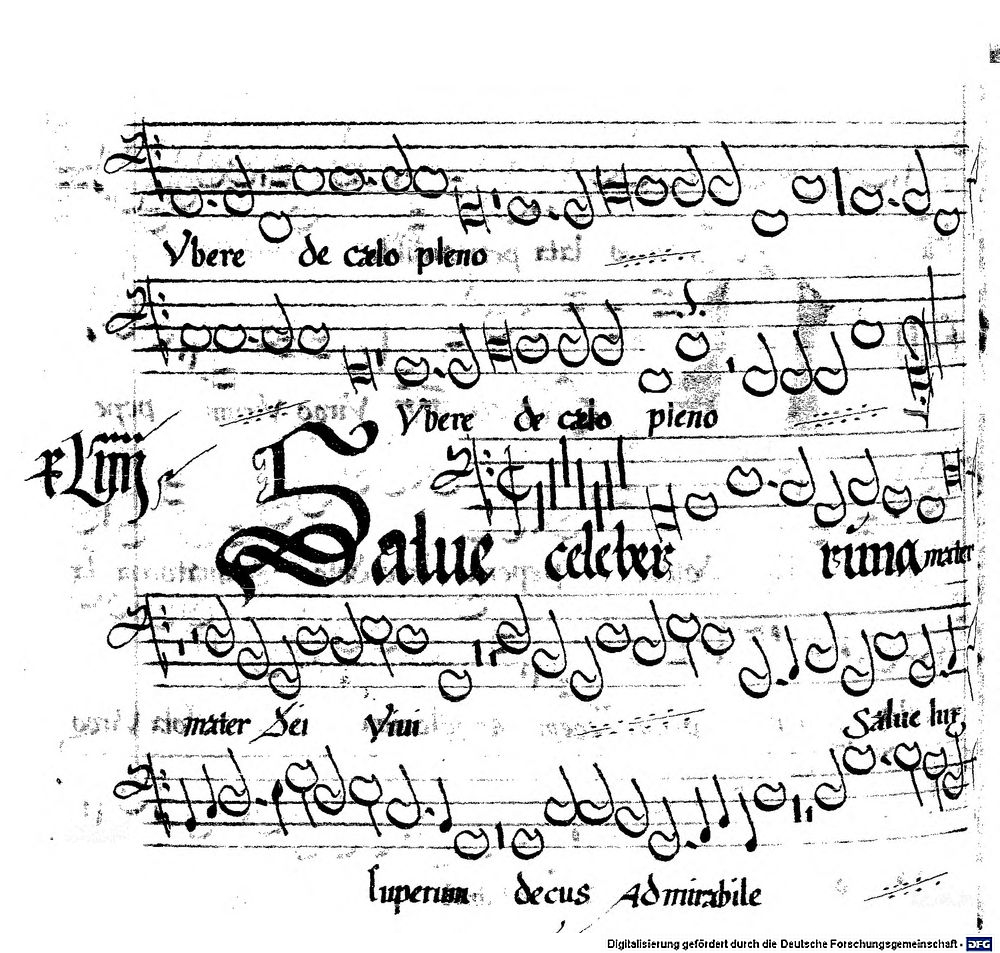 Vbere de cælo pleno
Vbere de cælo pleno
xLiiij
Salue celeber rima mater
mater Dei Viui Salue lux
superum decus Admirabile
Digitalisierung gefördert durch die Deutsche Forschungsgemeinschaft - DFG